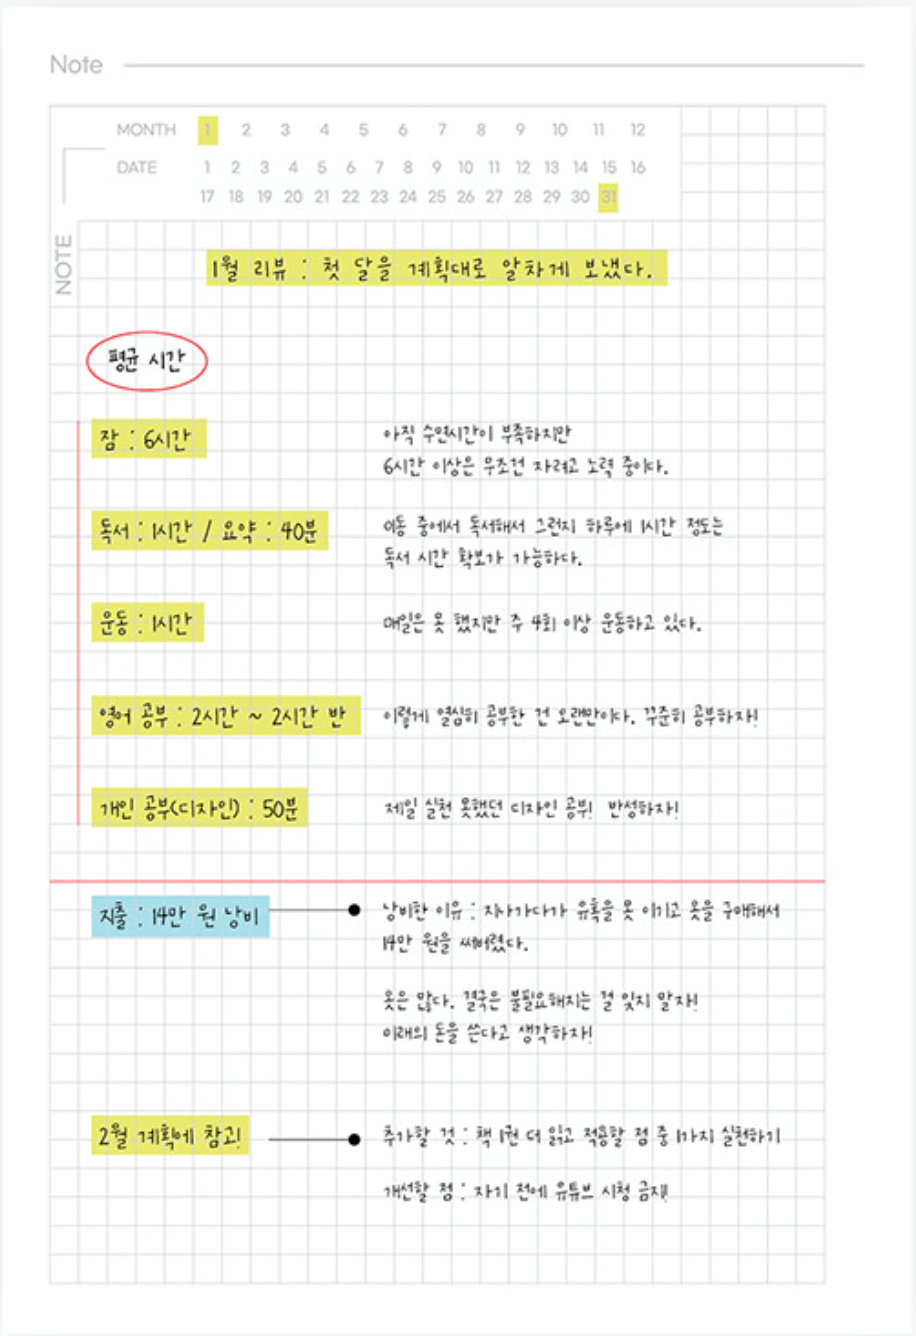 Note
MONTH 1 2 3 4 5 6 7 8 9 10 11 12
DATE 1 2 3 4 5 6 7 8 9 10 11 12 13 14 15 16
17 18 19 20 21 22 23 24 25 26 27 28 29 30 31
NOTE
1월 리뷰 : 첫 달을 계획대로 알차게 보냈다.
평균 시간
잠 : 6시간
아직 수면시간이 부족하지만
6시간 이상은 무조건 자려고 노력 중이다.
독서 : 1시간 / 요약 : 40분
이동 중에서 독서해서 그런지 하루에 1시간 정도는
독서 시간 확보가 가능하다.
운동 : 1시간
매일은 못 했지만 주 4회 이상 운동하고 있다.
영어 공부 : 2시간 ~ 2시간 반
이렇게 열심히 공부한 건 오랜만이다. 꾸준히 공부하자!
개인 공부(디자인) : 50분
제일 실천 못했던 디자인 공부! 반성하자!
지출 : 14만 원 낭비
낭비한 이유 : 지나가다가 유혹을 못 이기고 옷을 구매해서
14만 원을 써버렸다.
옷은 많다. 결국은 불필요해지는 걸 잊지 말자!
미래의 돈을 쓴다고 생각하자!
2월 계획에 참고!
추가할 것 : 책 1권 더 읽고 적용할 점 중 1가지 실천하기
개선할 점 : 자기 전에 유튜브 시청 금지!